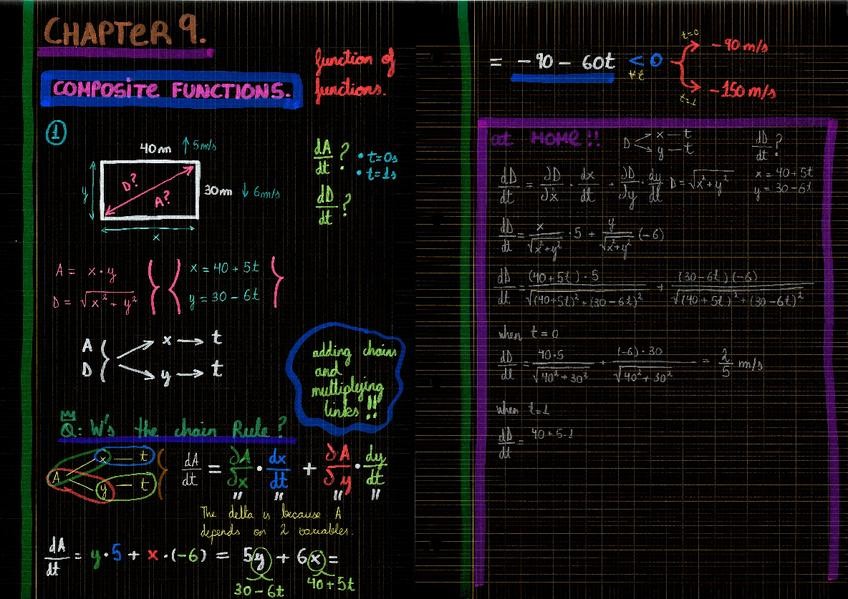 CHAPTER 9.
COMPOSITE FUNCTIONS.
function of
functions.
1
40m ↑5m/s
30m ↓ 6m/s
y
D?
A?
x
dA/dt ? • t=0s
• t=1s
dD/dt ?
A = x·y
D = √x²+y²
x = 40+5t
y = 30-6t
A
D
x → t
y → t
adding chains
and
multiplying
links !!
Q: W's the chain Rule?
A
x — t
y — t
dA/dt = ∂A/∂x · dx/dt + ∂A/∂y · dy/dt
The delta is because A
depends on 2 variables.
dA/dt = y·5 + x·(-6) = 5y + 6x =
30-6t 40+5t
= -90 - 60t < 0
∀t
t=0 -90 m/s
t=1 -150 m/s
at HOME!!
D x — t
y — t
dD/dt ?
dD/dt = ∂D/∂x · dx/dt + ∂D/∂y · dy/dt
D = √x²+y²
x = 40+5t
y = 30-6t
dD/dt = x/√x²+y² · 5 + y/√x²+y² (-6)
dD/dt = (40+5t)·5/√(40+5t)²+(30-6t)² + (30-6t)(-6)/√(40+5t)²+(30-6t)²
when t=0
dD/dt = 40·5/√40²+30² + (-6)·30/√40²+30² = 2/5 m/s
when t=1
dD/dt = 40+5·1